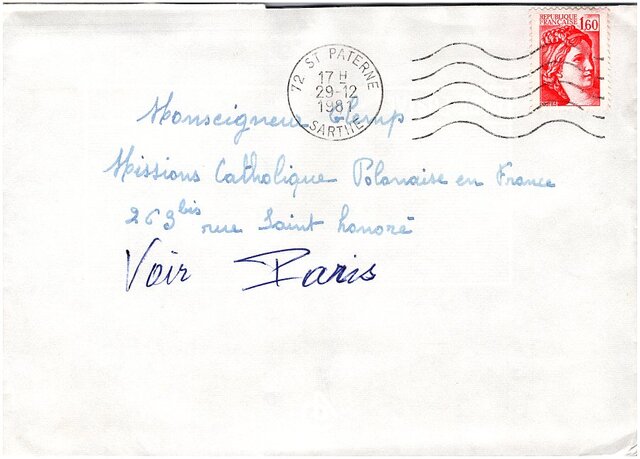 RÉPUBLIQUE
FRANÇAISE
1,60
72 ST PATERNE
17 H
29-12
1981
SARTHE
Monseigneur Glemp
Missions Catholique Polonaise en France
263 bis rue Saint honoré
Voir Paris